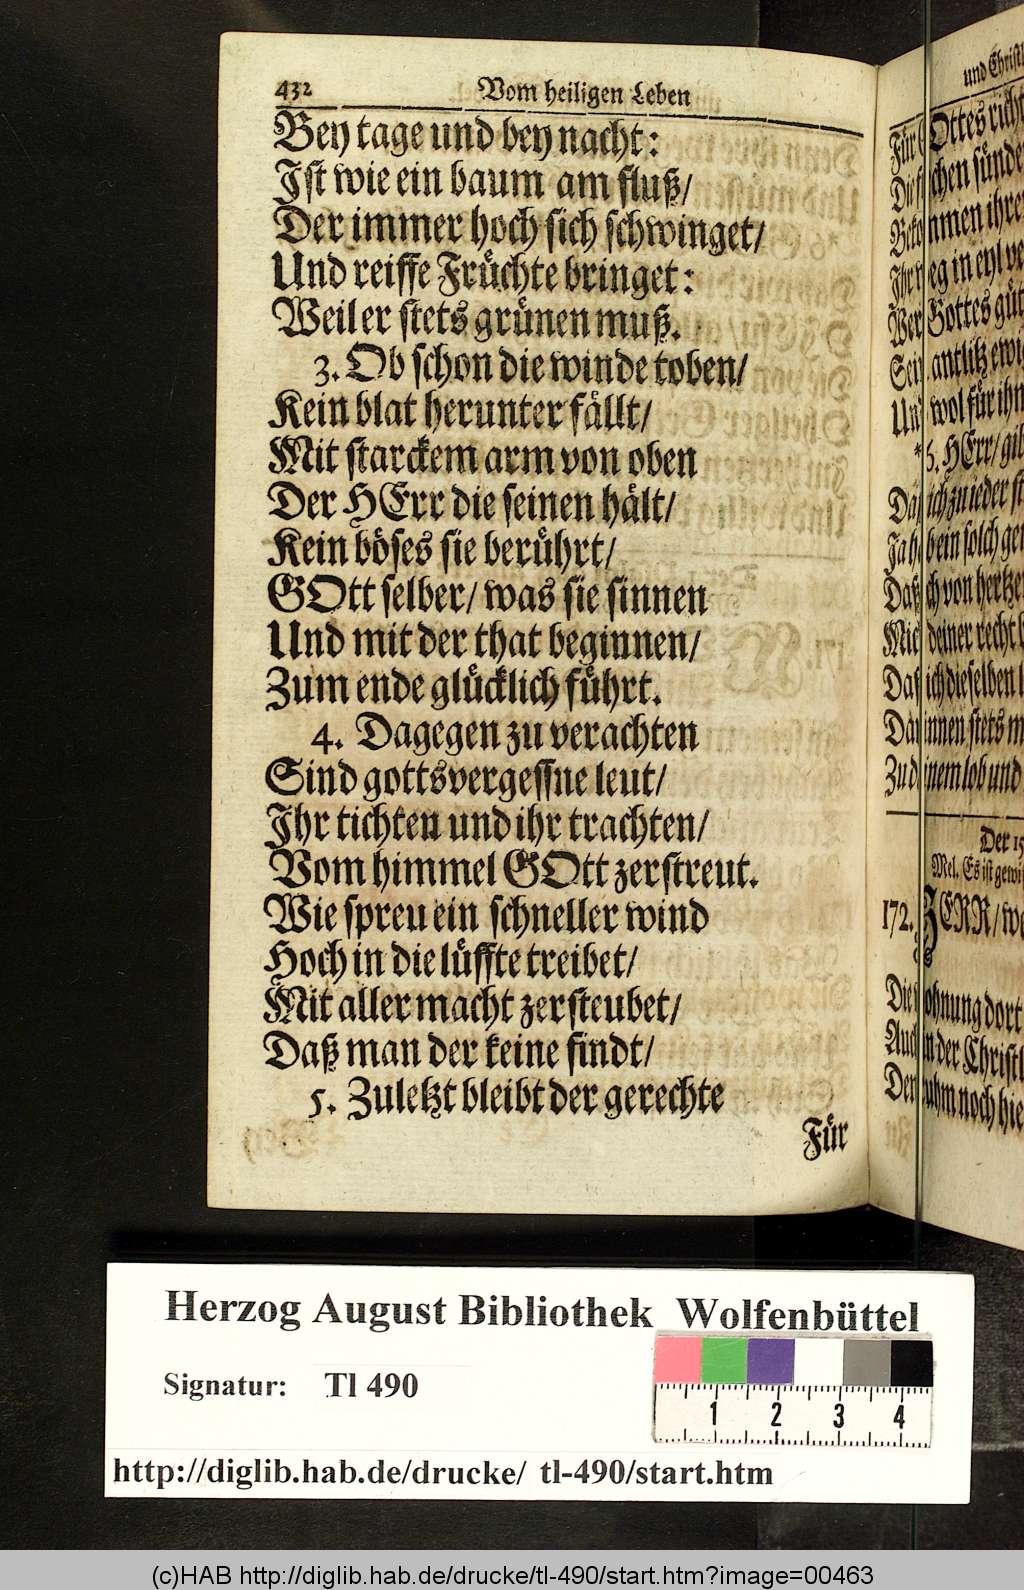 432 Vom heiligen Leben
Bey tage und bey nacht:
Ist wie ein baum am fluß/
Der immer hoch sich schwinget/
Und reiffe Früchte bringet:
Weil er stets grünen muß.
3. Ob schon die winde toben/
Kein blat herunter fällt/
Mit starckem arm von oben
Der HErr die seinen hält/
Kein böses sie berührt/
GOtt selber/ was sie sinnen
Und mit der that beginnen/
Zum ende glücklich führt.
4. Dagegen zu verachten
Sind gottsvergeßne leut/
Ihr tichten und ihr trachten/
Vom himmel GOtt zerstreut.
Wie spreu ein schneller wind
Hoch in die lüffte treibet/
Mit aller macht zersteubet/
Daß man der keine findt/
5. Zuletzt bleibt der gerechte
Für
und
Für
Gottes
Ihr
Gottes güt
antlitz
wol für ihn
5. HErr/
von hertzen
deiner recht
innen stets
lob und
Der 15
Mel. Es ist
172. HERR/
dort
Auch
der
noch hie
Herzog August Bibliothek Wolfenbüttel
Signatur: Tl 490
1 2 3 4
http://diglib.hab.de/drucke/ tl-490/start.htm
(c)HAB http://diglib.hab.de/drucke/tl-490/start.htm?image=00463